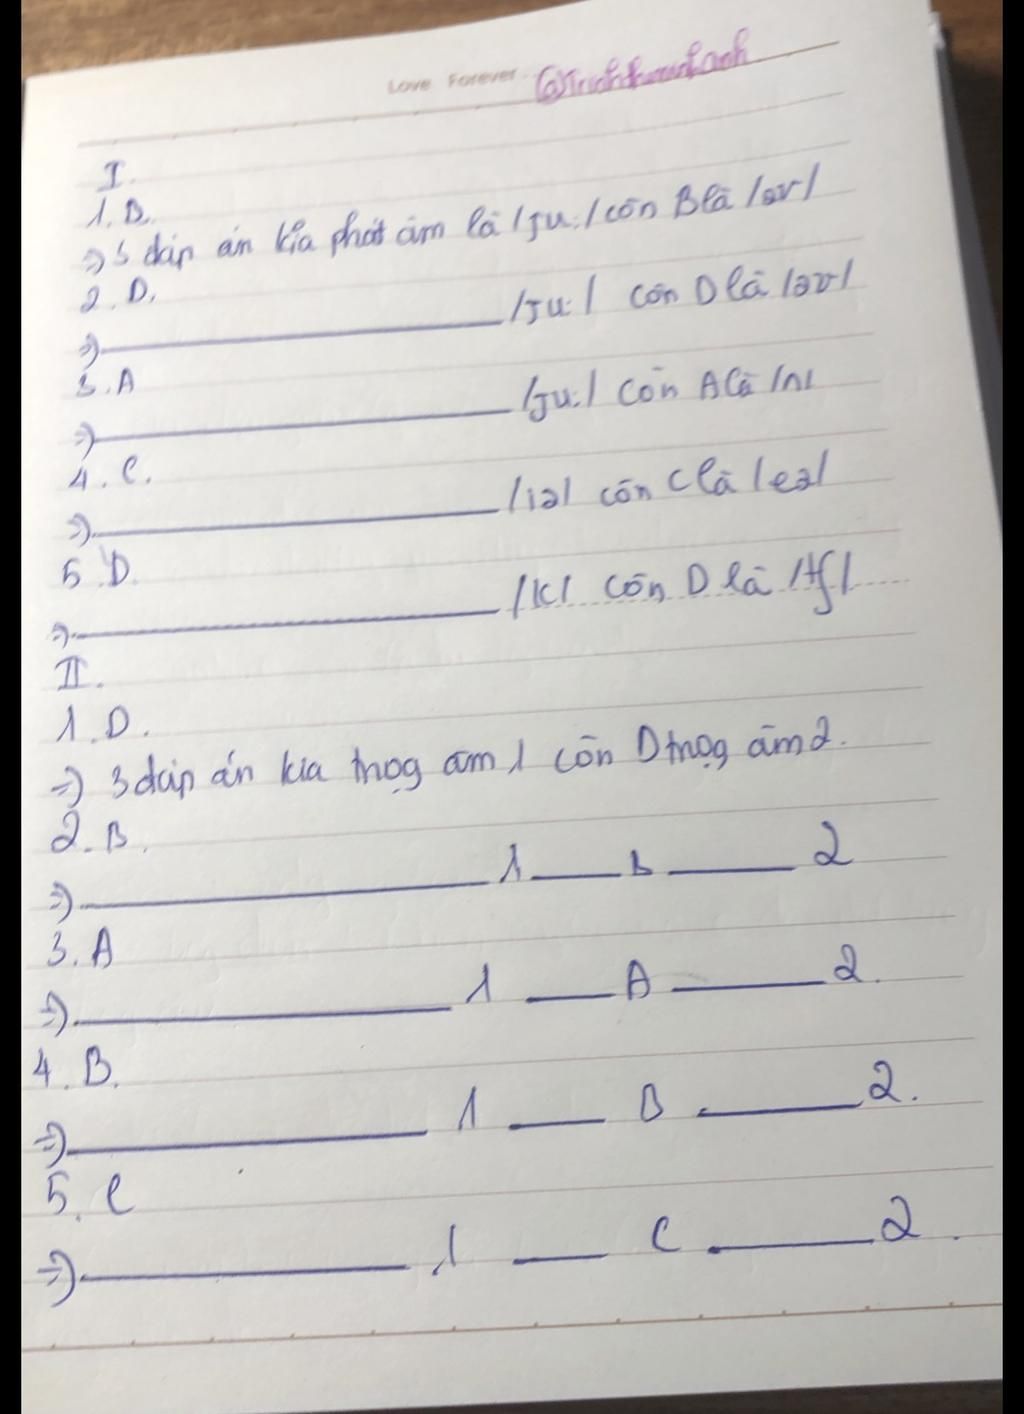 Love Forever
I.
1. B.
=> 3 đáp án kia phát âm là /ju:/ còn B là /əʊ/
2. D.
=> /ju:/ còn D là /əʊ/
3. A
=> /ju:/ còn A là /ʌ/
4. C.
=> /iə/ còn C là /eə/
5. D.
=> /k/ còn D là /tʃ/
II.
1. D.
=> 3 đáp án kia trọg âm 1 còn D trọg âm 2.
2. B.
=> 1 B 2
3. A
=> 1 A 2.
4. B.
=> 1 B 2.
5. C
=> 1 C 2.